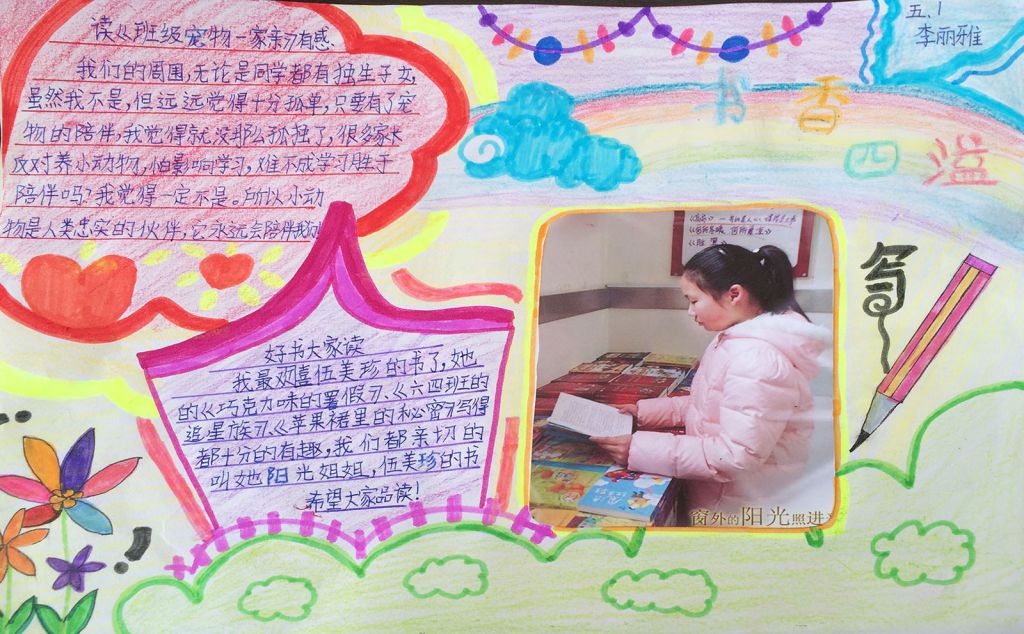 读《班级宠物一家亲》有感、
我们的周围,无论是同学都有独生子女,
虽然我不是,但远远觉得十分孤单,只要有了宠
物的陪伴,我觉得就没那么孤独了,很多家长
反对养小动物,怕影响学习,难不成学习胜于
陪伴吗?我觉得一定不是。所以小动
物是人类忠实的伙伴,它永远会陪伴我们
五.1
李丽雅
书香
四溢
写
好书大家读
我最欢喜伍美珍的书了,她
的《巧克力味的暑假》、《六四班的
追星族》《苹果裙里的秘密》写得
都十分的有趣,我们都亲切的
叫她阳光姐姐,伍美珍的书
希望大家品读!
窗外的阳光照进